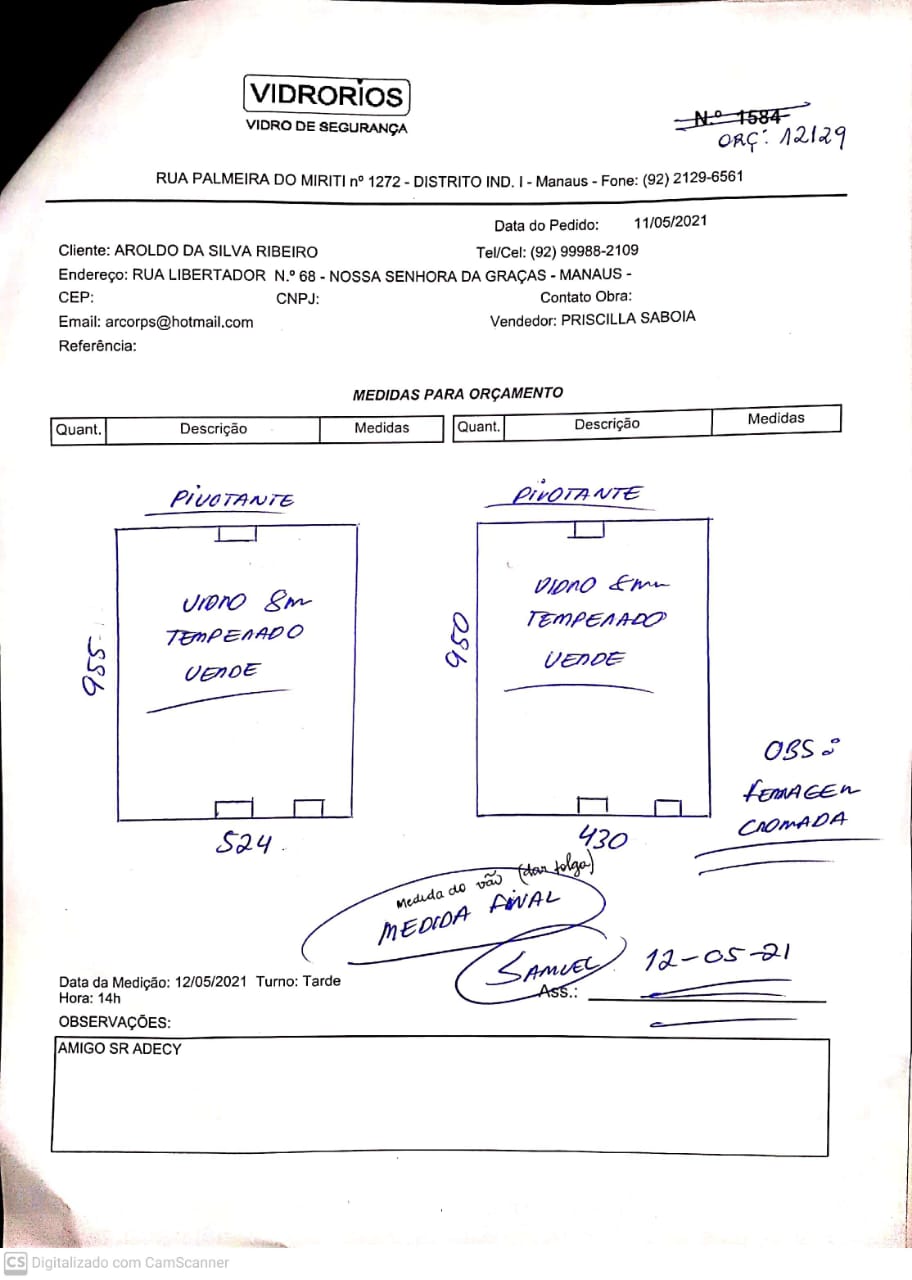 VIDRORIOS
VIDRO DE SEGURANÇA
N.º 1584
ORÇ: 12129
RUA PALMEIRA DO MIRITI nº 1272 - DISTRITO IND. I - Manaus - Fone: (92) 2129-6561
Data do Pedido: 11/05/2021
Cliente: AROLDO DA SILVA RIBEIRO Tel/Cel: (92) 99988-2109
Endereço: RUA LIBERTADOR N.º 68 - NOSSA SENHORA DA GRAÇAS - MANAUS -
CEP: CNPJ: Contato Obra:
Email: arcorps@hotmail.com Vendedor: PRISCILLA SABOIA
Referência:
MEDIDAS PARA ORÇAMENTO
Quant. Descrição Medidas Quant. Descrição Medidas
PIVOTANTE
VIDRO 8m
TEMPERADO
VERDE
955
524
PIVOTANTE
VIDRO 8mm
TEMPERADO
VERDE
950
430
OBS:
FERRAGEM
CROMADA
Medida do vão (dar folga)
MEDIDA FINAL
SAMUEL 12-05-21
Ass.:
Data da Medição: 12/05/2021 Turno: Tarde
Hora: 14h
OBSERVAÇÕES:
AMIGO SR ADECY
CS Digitalizado com CamScanner